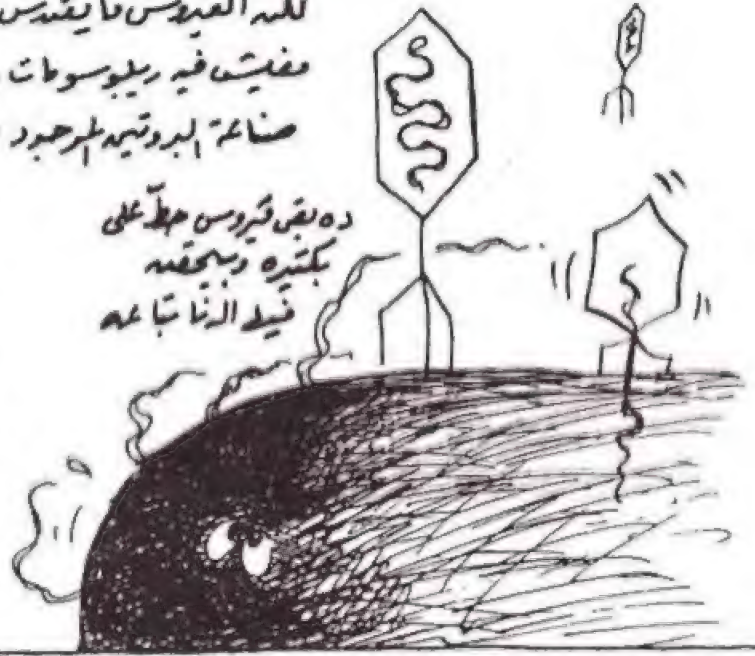 لكن الفيروس ما يقدرش
مفيش فيه ريبوسومات
صناعة البروتين الموجود
ده بقى ڤيروس حطّ على
بكتيره وبيحقن
فيها الدنا بتاعه